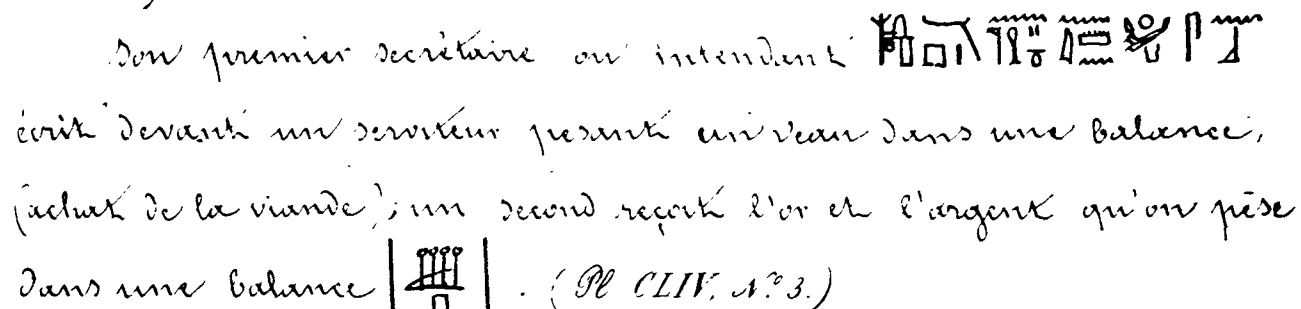 Son premier secrétaire ou intendant
écrit devant un serviteur pesant un veau dans une balance,
(achat de la viande); un second reçoit l'or et l'argent qu'on pèse
dans une balance | | . (Pl CLIV, N.º 3.)